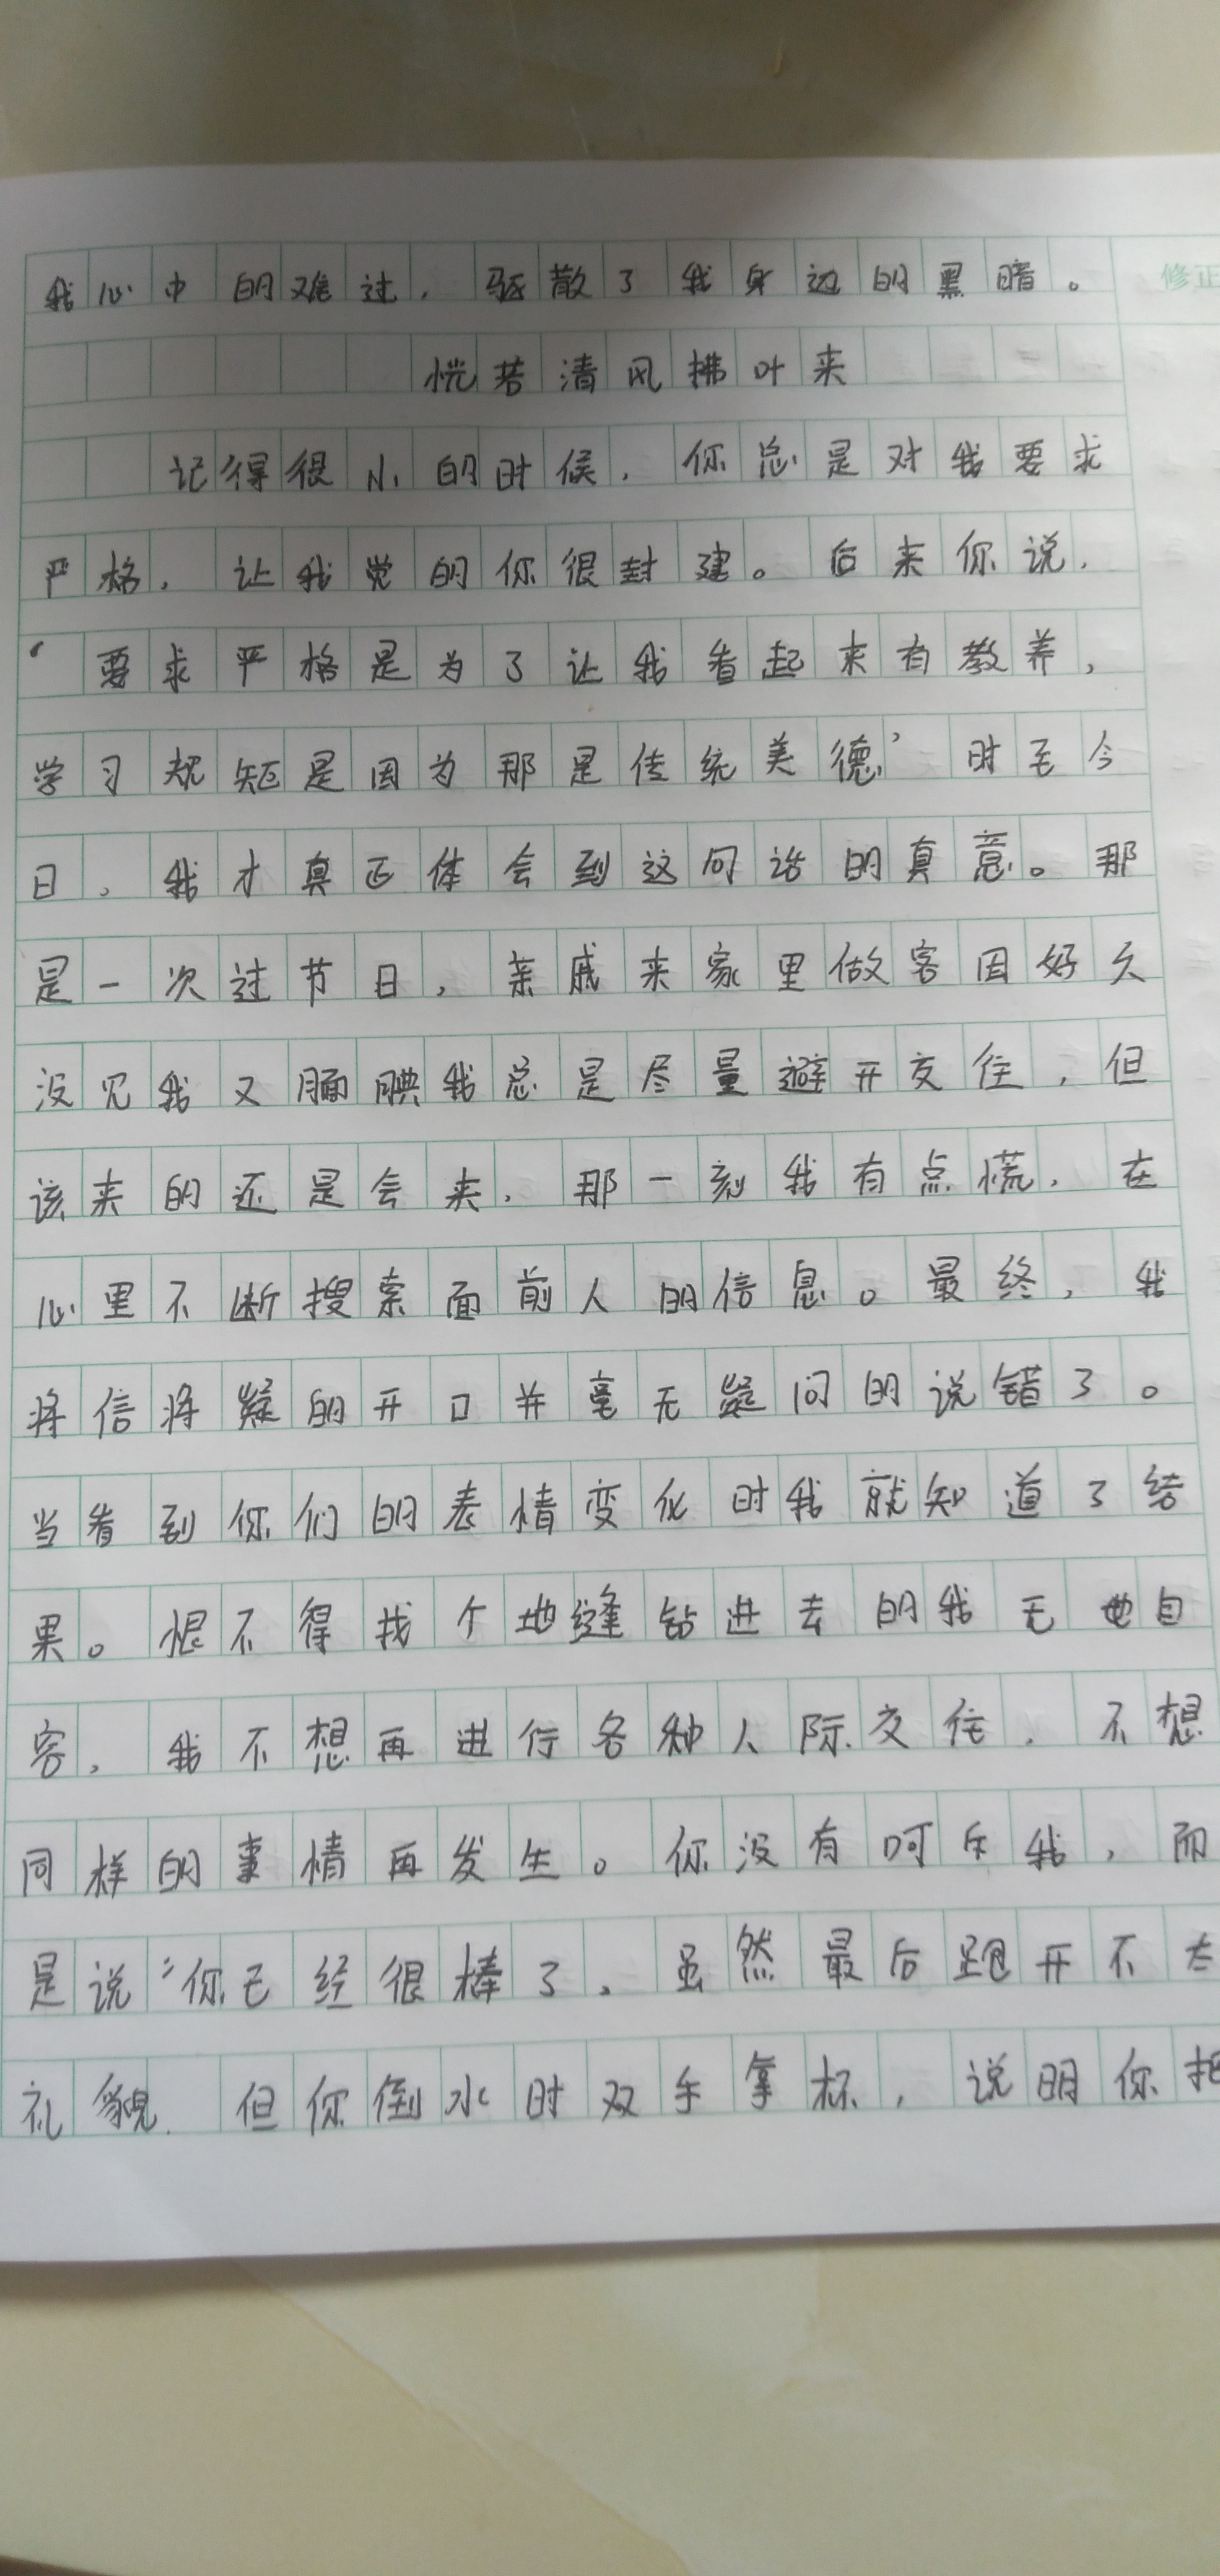 我心中的难过，驱散了我身边的黑暗。
修正
恍若清风拂叶来
记得很小的时候，你总是对我要求
严格，让我觉的你很封建。后来你说，
‘要求严格是为了让我看起来有教养，
学习规矩是因为那是传统美德’时至今
日，我才真正体会到这句话的真意。那
是一次过节日，亲戚来家里做客因好久
没见我又腼腆我总是尽量避开交往，但
该来的还是会来，那一刻我有点慌，在
心里不断搜索面前人的信息。最终，我
将信将疑的开口并毫无疑问的说错了。
当看到你们的表情变化时我就知道了结
果。恨不得找个地缝钻进去的我无地自
容，我不想再进行各种人际交往，不想
同样的事情再发生。你没有呵斥我，而
是说“你已经很棒了，虽然最后跑开不太
礼貌，但你倒水时双手拿杯，说明你把